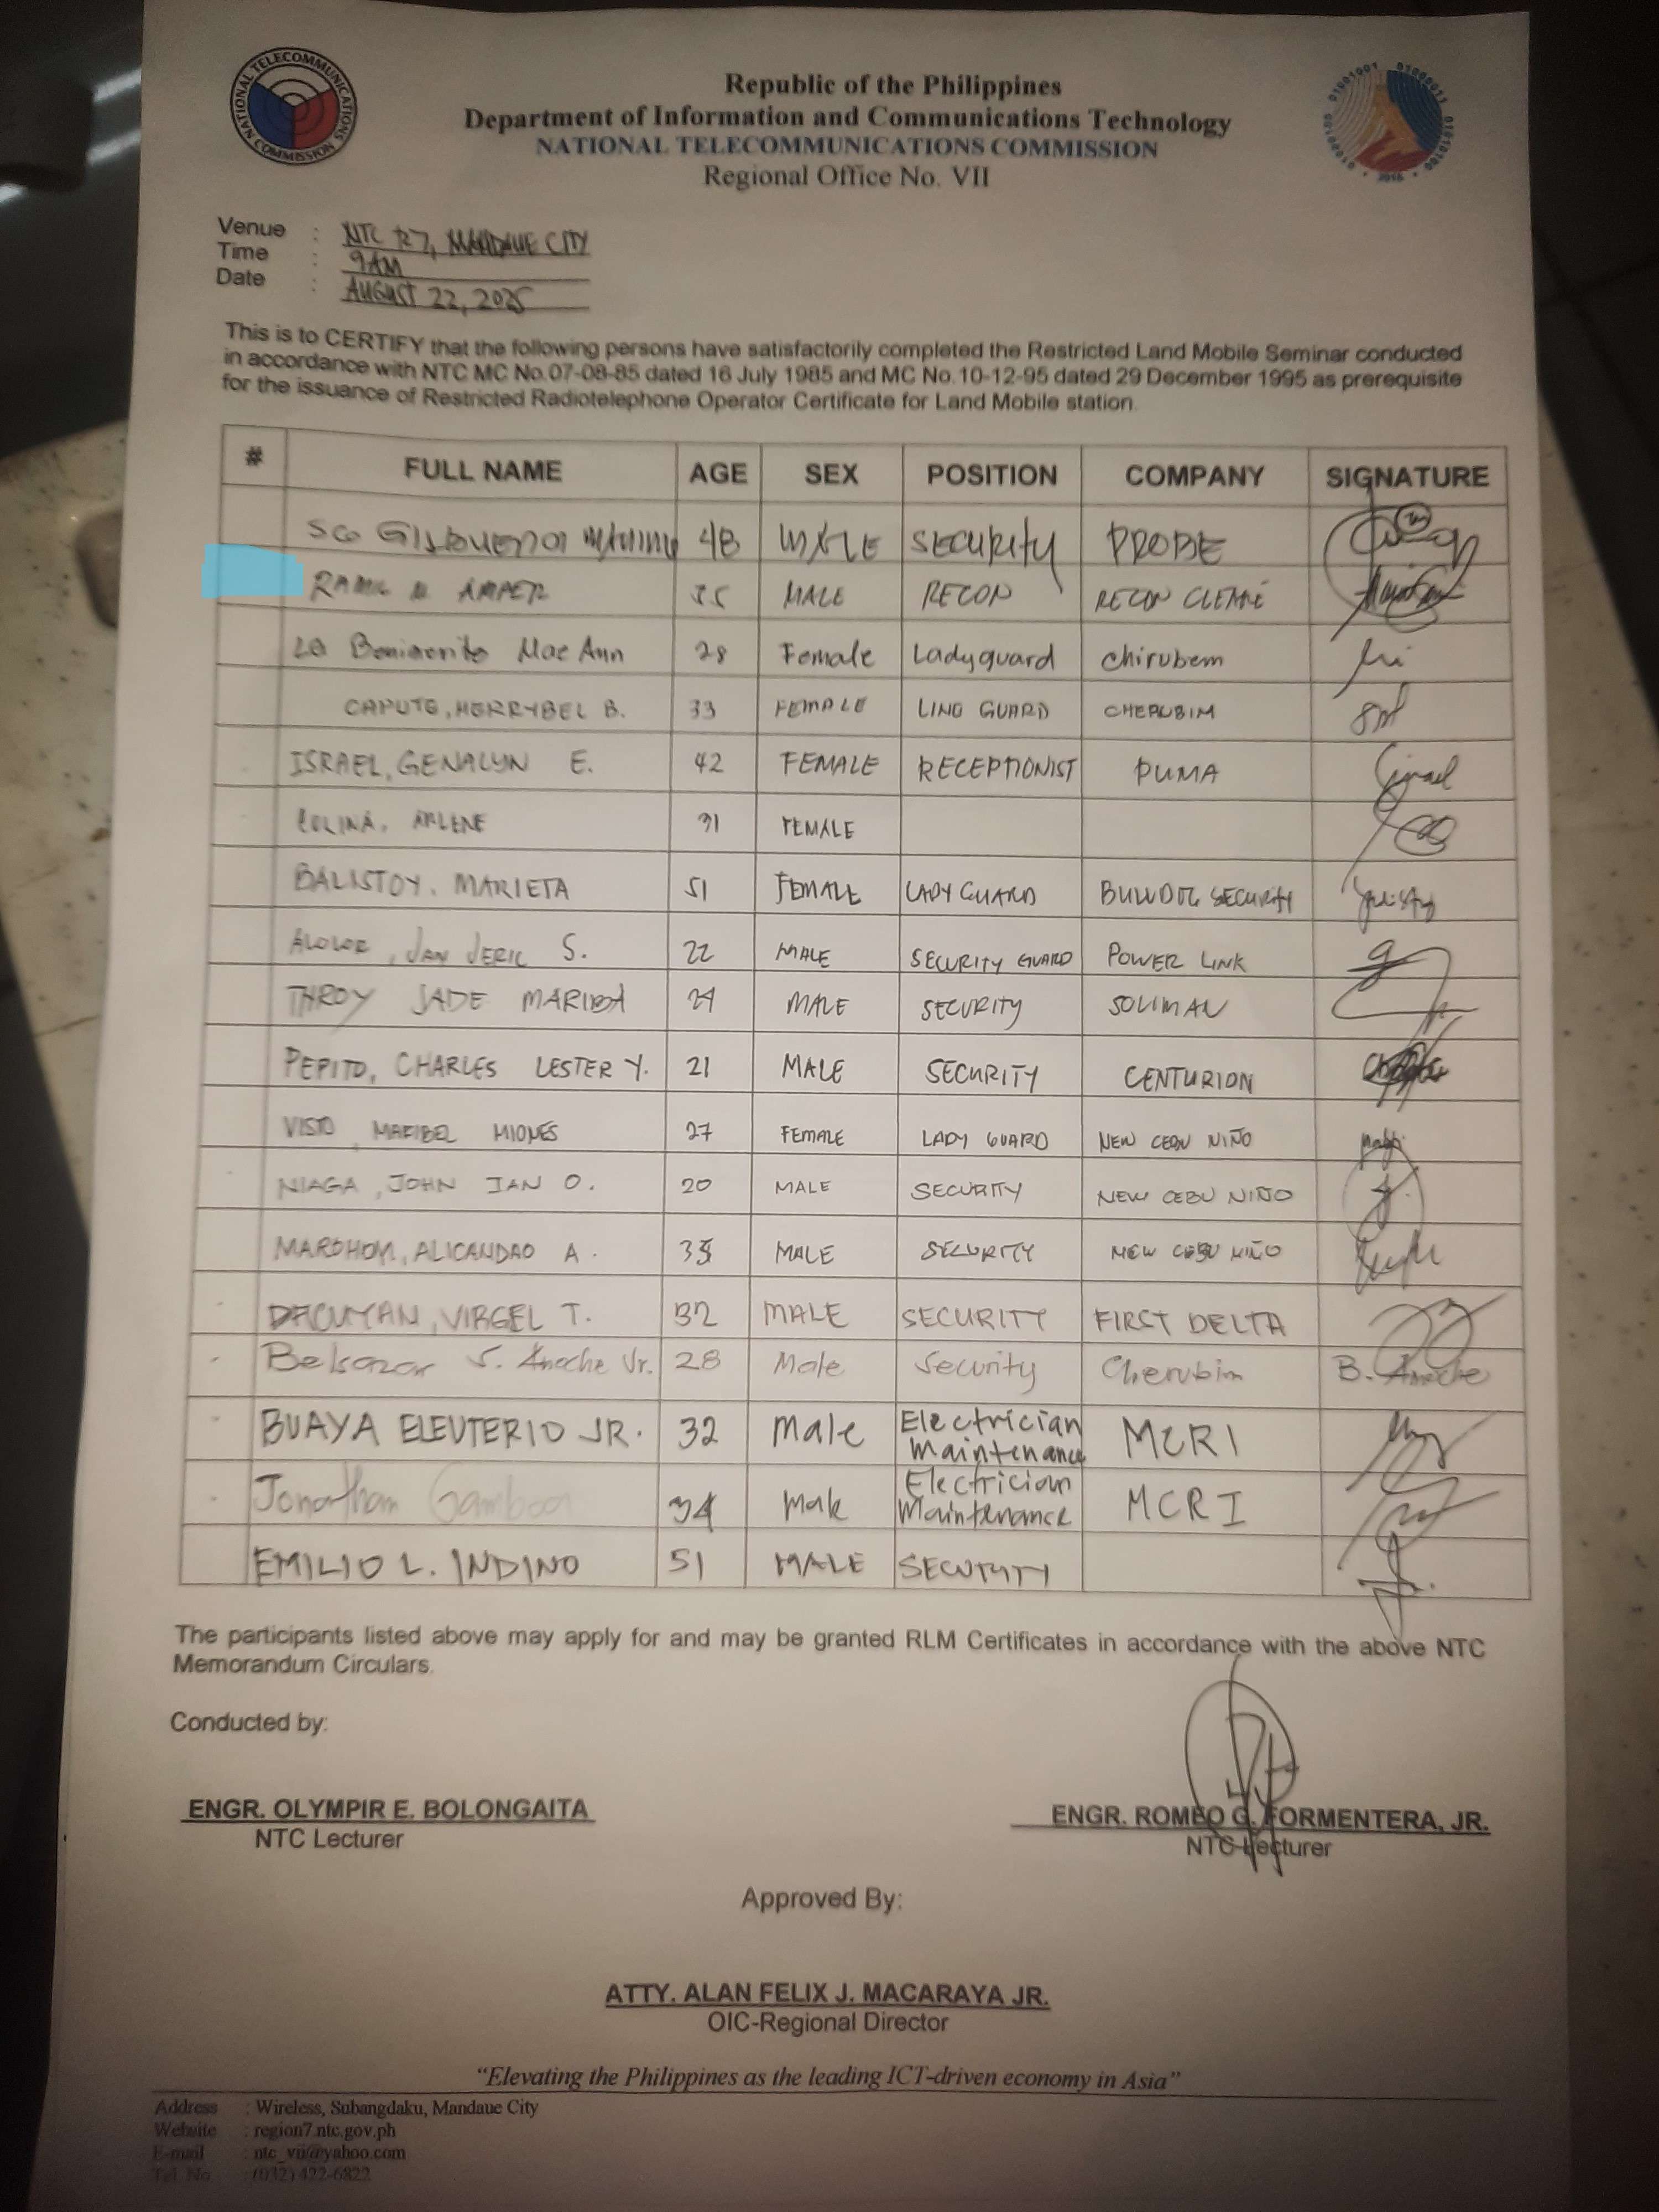 NATIONAL TELECOMMUNICATIONS COMMISSION
Republic of the Philippines
Department of Information and Communications Technology
NATIONAL TELECOMMUNICATIONS COMMISSION
Regional Office No. VII
Venue : NTC R7, MANDAUE CITY
Time : 9AM
Date : AUGUST 22, 2025
This is to CERTIFY that the following persons have satisfactorily completed the Restricted Land Mobile Seminar conducted
in accordance with NTC MC No.07-08-85 dated 16 July 1985 and MC No.10-12-95 dated 29 December 1995 as prerequisite
for the issuance of Restricted Radiotelephone Operator Certificate for Land Mobile station.
# FULL NAME AGE SEX POSITION COMPANY SIGNATURE
48 MALE SECURITY PROBE
RAMIL N. AMPER 35 MALE RECON RECON
Mae Ann 28 Female Ladyguard chirubem
HERRYBEL B. 33 FEMALE GUARD CHERUBIM
ISRAEL, GENALYN E. 42 FEMALE RECEPTIONIST PUMA
COLINA, ARLENE 31 FEMALE
BALISTOY, MARIETA 51 FEMALE LADY GUARD SECURITY
JAN JERIC S. 22 MALE SECURITY GUARD POWER LINK
THROY JADE 29 MALE SECURITY SOLIMAN
PEPITO, CHARLES LESTER Y. 21 MALE SECURITY CENTURION
VISTO MARIBEL MIONES 27 FEMALE LADY GUARD NEW CEBU NIÑO
NIAGA, JOHN IAN O. 20 MALE SECURITY NEW CEBU NIÑO
ALICANDAO A. MALE SECURITY NEW CEBU NIÑO
DACUYAN, VIRGEL T. 32 MALE SECURITY FIRST DELTA
S. Jr. 28 Male Security Cherubim
BUAYA ELEUTERIO JR. 32 Male Electrician Maintenance MCRI
Gamboa 34 Male Electrician Maintenance MCRI
EMILIO L. INDINO 51 MALE SECURITY
The participants listed above may apply for and may be granted RLM Certificates in accordance with the above NTC
Memorandum Circulars.
Conducted by:
ENGR. OLYMPIR E. BOLONGAITA
NTC Lecturer
ENGR. ROMEO G. FORMENTERA, JR.
NTC Lecturer
Approved By:
ATTY. ALAN FELIX J. MACARAYA JR.
OIC-Regional Director
“Elevating the Philippines as the leading ICT-driven economy in Asia”
Address : Wireless, Subangdaku, Mandaue City
Website : region7.ntc.gov.ph
E-mail : ntc_vii@yahoo.com
Tel. No. : (032) 422-6822